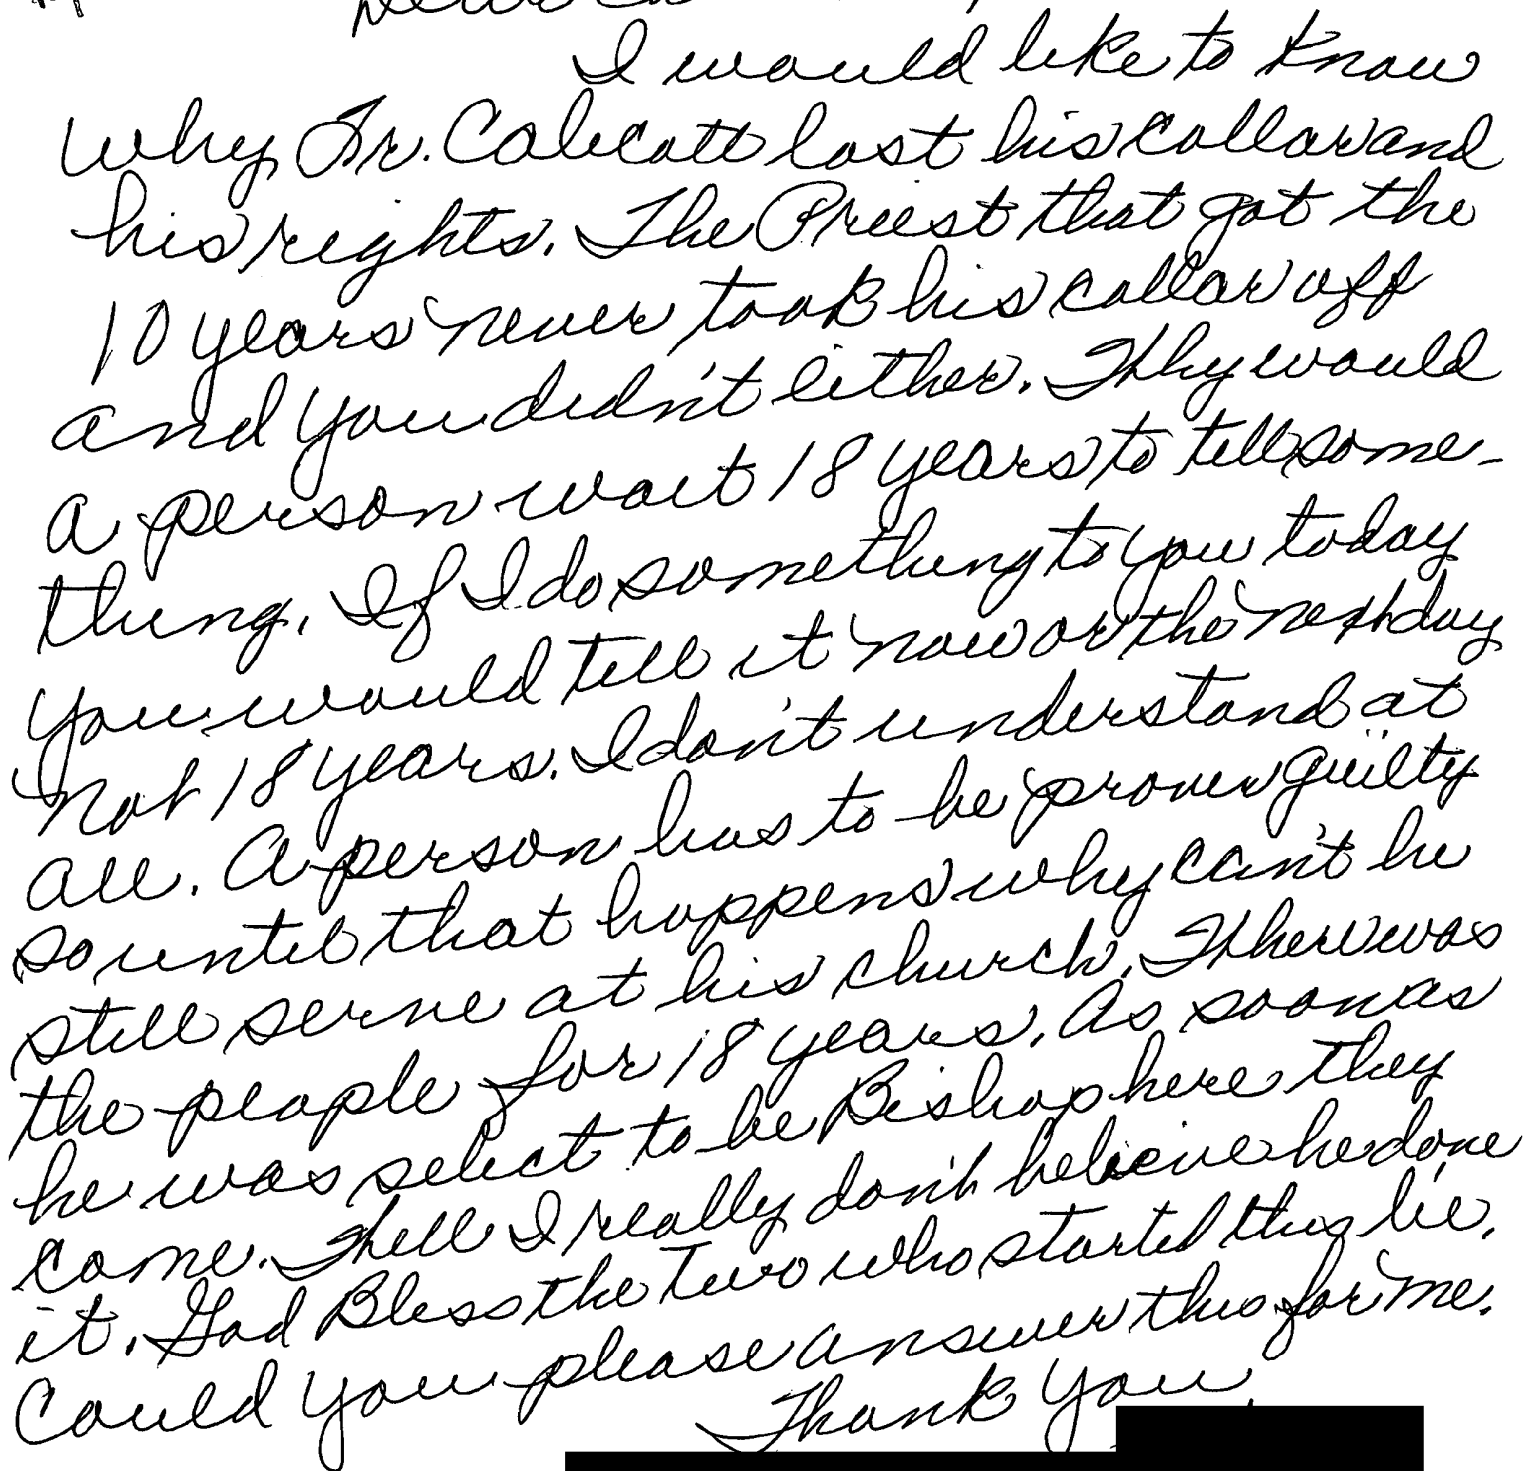 I would like to know
why Fr. Calicott lost his collar and
his rights. The Priest that got the
10 years never took his collar off
and you didn't either. Why would
a person wait 18 years to tell some-
thing. If I do something to you today
you would tell it now or the next day
not 18 years. I don't understand at
all. A person has to be proven guilty
so until that happens why can't he
still serve at his church. There was
the people for 18 years. As soon as
he was select to be Bishop here they
come. Well I really don't believe he done
it. God Bless the Two who started this lie.
Could you please answer this for me.
Thank You